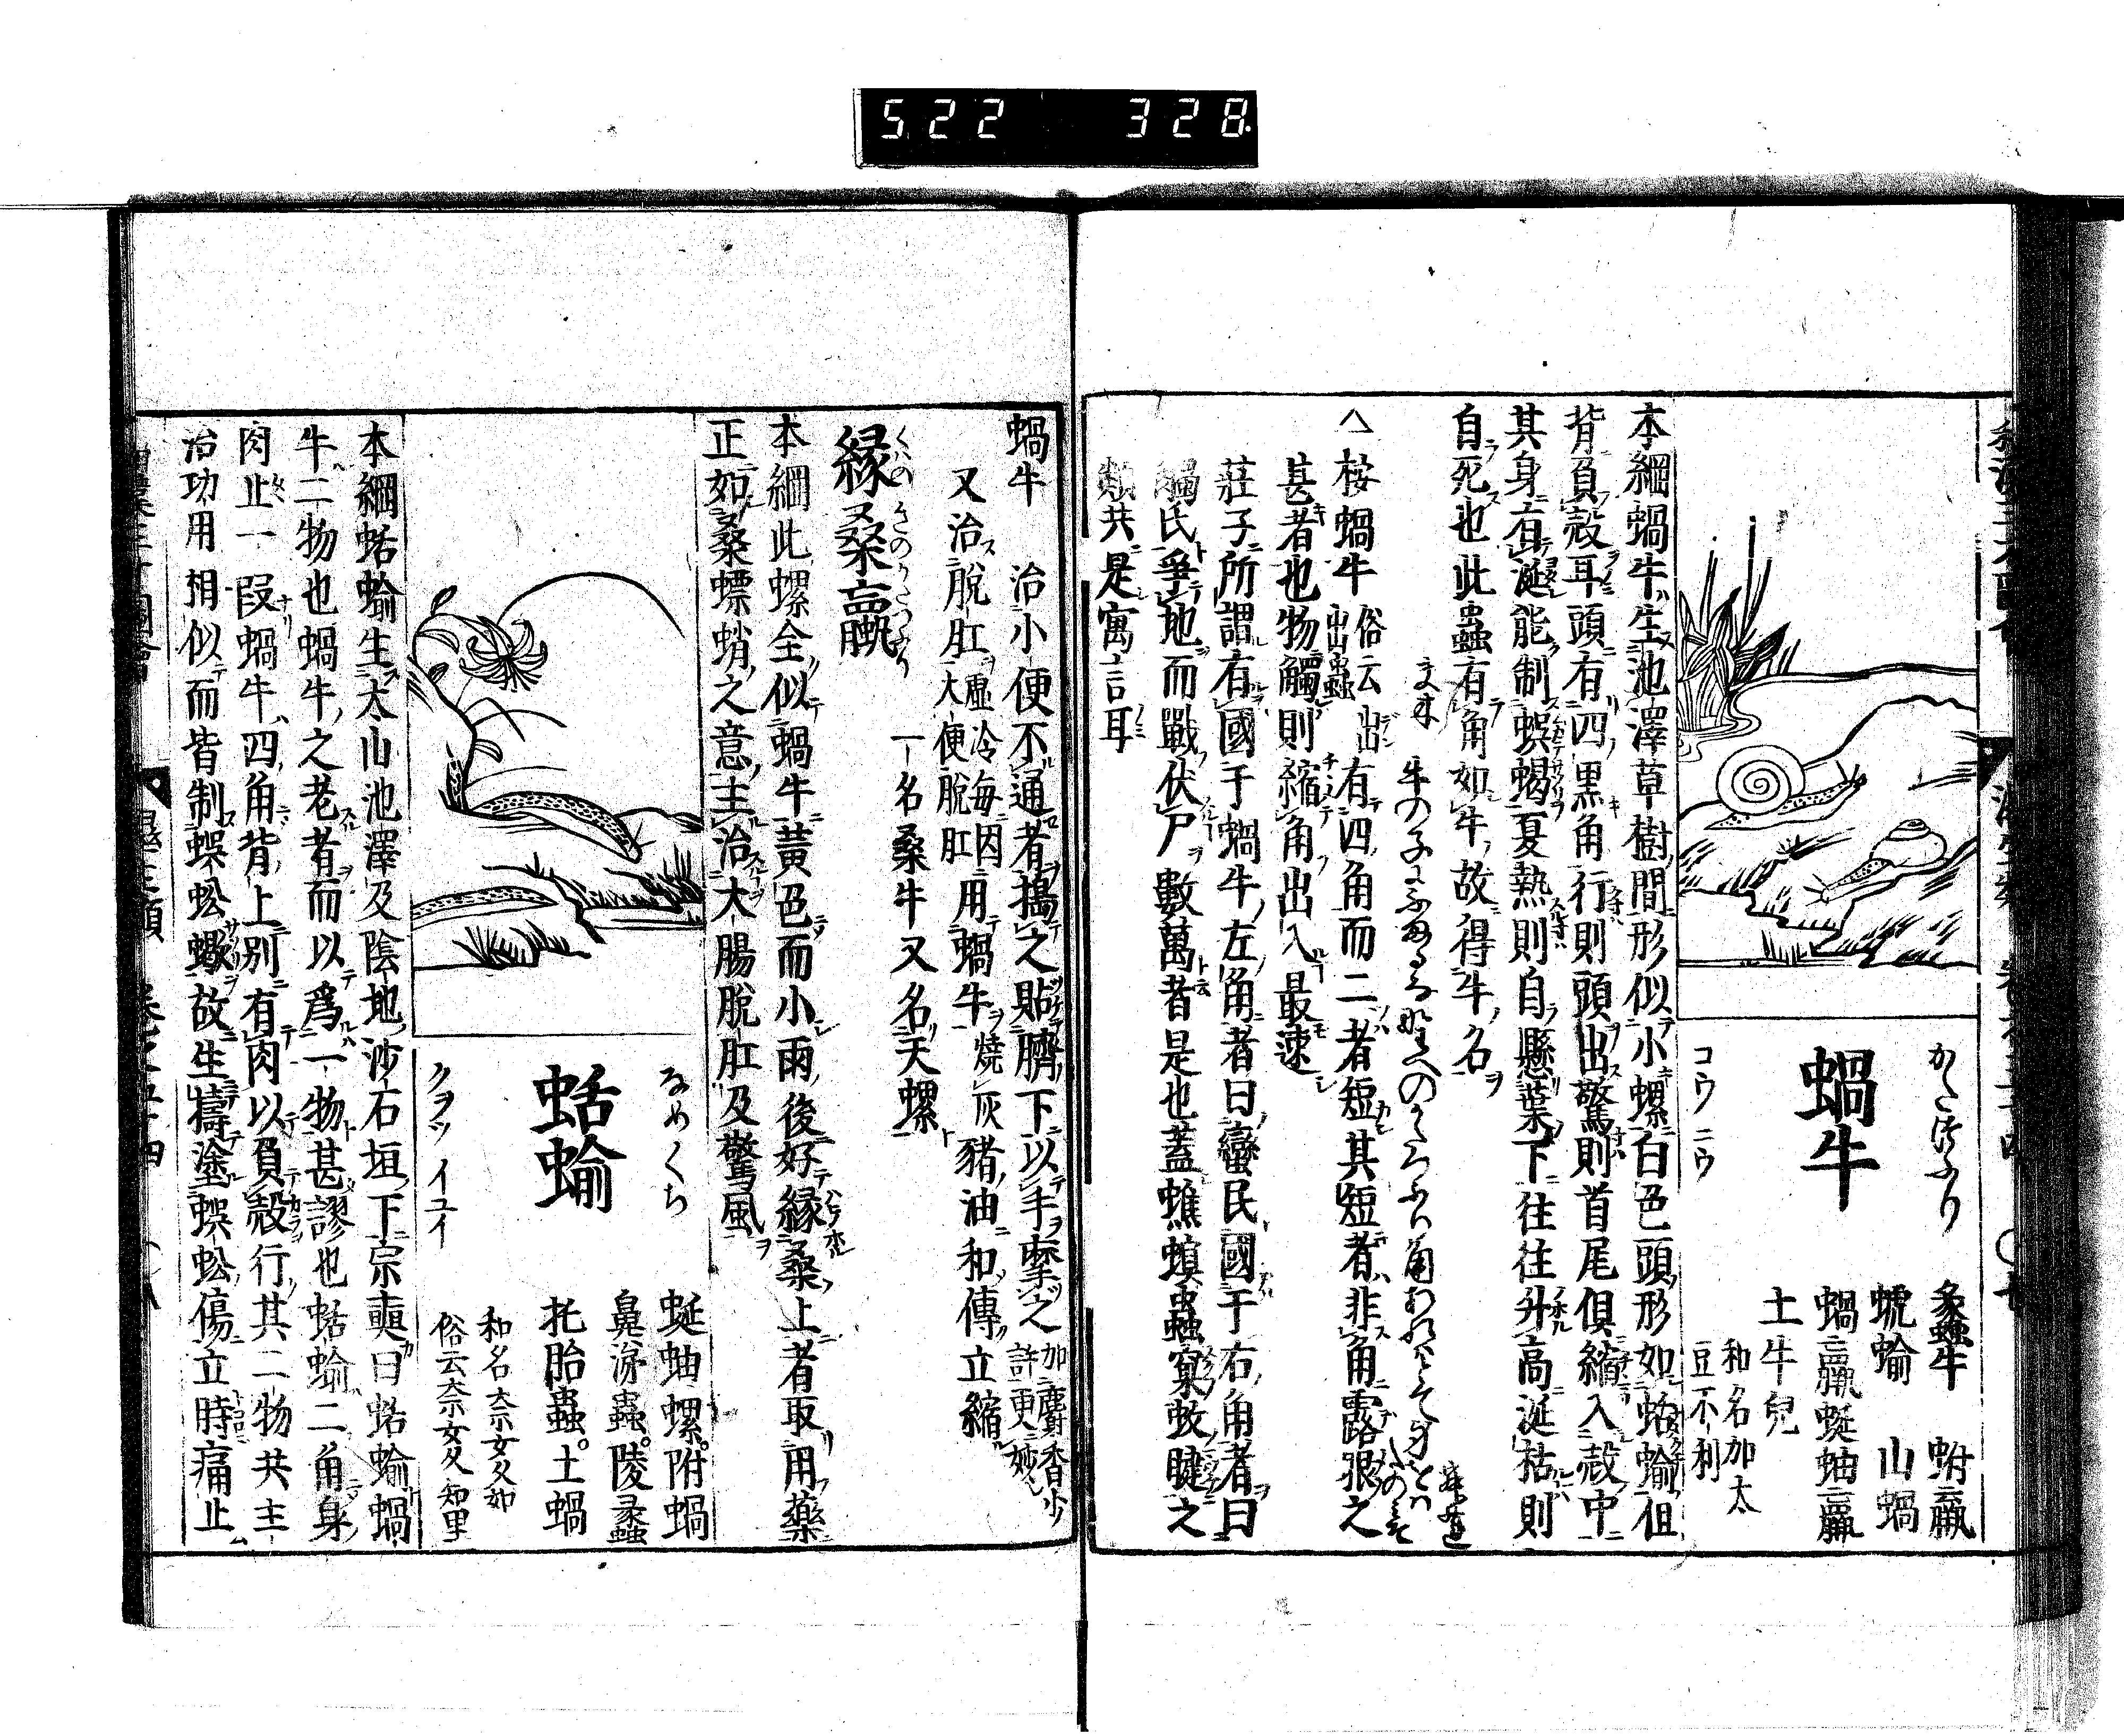 522 328.
かたつふり
蝸牛
コウ ニウ
蠡牛 蚹蠃
螔蝓 山蝸
蝸蠃 蜒蚰蠃
土牛兒
和名加太
豆不利
本綱蝸牛生池澤草樹間形似小螺白色頭形如蛞蝓但
背負殼耳頭有四黒角行則頭出驚則首尾俱縮入殼中
其身有涎能制蜈蝎夏熱則自懸葉下往往升高涎枯則
自死也此蟲有角如牛故得牛名
牛の子にふまるな庭のかたつふり角あれはとて身をはたのみそ 寂蓮
△桉蝸牛 俗云出出蟲 有四角而二者短其短者非角露眼之
甚者也物觸則縮角出入最速
莊子所謂有國于蝸牛左角者曰蠻民國于右角者曰
觸氏爭地而戰伏尸數萬者是也蓋蟭螟蟲窠蚊睫之
類共是寓言耳
蝸牛 治小便不通者搗之貼臍下以手摩之 加麝香少許更妙
又治脫肛 虛冷每因大便脫肛 用蝸牛 燒灰 豬油和傳立縮
緣桑蠃 くはのきのかたつふり 一名桑牛又名天螺
本綱此螺全似蝸牛黃色而小雨後好緣桑上者取用藥
正如桑螵蛸之意主治大腸脫肛及驚風
なめくち
蛞蝓
クヲツ イユイ
蜒蚰螺 附蝸
鼻涕蟲 陵蠡
托胎蟲 土蝸
和名奈女久知
俗云奈女久知里
本綱蛞蝓生太山池澤及陰地沙石垣下宗奭曰蛞蝓蝸
牛二物也蝸牛之老者而以爲一物甚謬也蛞蝓二角身
肉止一段蝸牛四角背上別有肉以負殼行其二物共主
治功用相似而皆制蜈蚣蠍故生擣塗蜈蚣傷立時痛止